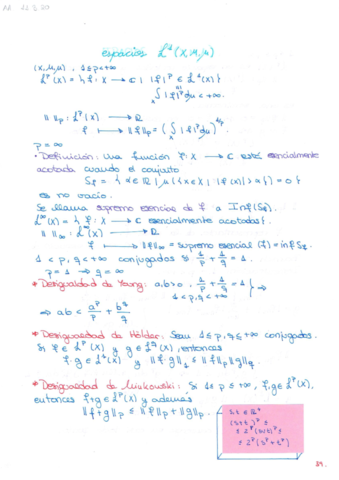 espacios L¹(X,M,μ)
(X,M,μ), 1≤p<+∞
L^p(X) = { f: X → ℂ | |f|^p ∈ L¹(X) }
∫_X |f|^p dμ < +∞.
‖ ‖_p: L^p(X) → ℝ
f ↦ ‖f‖_p = (∫_X |f|^p dμ)^{1/p}
p = ∞
• Definición: Una función f: X → ℂ está esencialmente
acotada cuando el conjunto
S_f = { α ∈ ℝ | μ({x∈X | |f(x)| > α}) = 0 }
es no vacío.
Se llama supremo esencial de f a Inf(S_f).
L^∞(X) = { f: X → ℂ esencialmente acotadas }.
‖ ‖_∞: L^∞(X) → ℝ
f ↦ ‖f‖_∞ = supremo esencial (f) = inf S_f.
1 < p, q < +∞ conjugados si 1/p + 1/q = 1.
p = 1 → q = ∞
* Desigualdad de Young: a,b>0, 1/p + 1/q = 1 } ⇒
1 < p, q < +∞
⇒ ab < a^p/p + b^q/q
* Desigualdad de Hölder: Sean 1 ≤ p, q ≤ +∞ conjugados.
Si f ∈ L^p(X) y g ∈ L^q(X), entonces
f·g ∈ L¹(X) y ‖f·g‖₁ ≤ ‖f‖_p ‖g‖_q.
* Desigualdad de Minkowski: Si 1 ≤ p ≤ +∞, f,g ∈ L^p(X),
entonces f+g ∈ L^p(X) y además
‖f+g‖_p ≤ ‖f‖_p + ‖g‖_p.
s,t ∈ ℝ⁺
(s+t)^p ≤
≤ 2^p (s∨t)^p ≤
≤ 2^p (s^p + t^p)